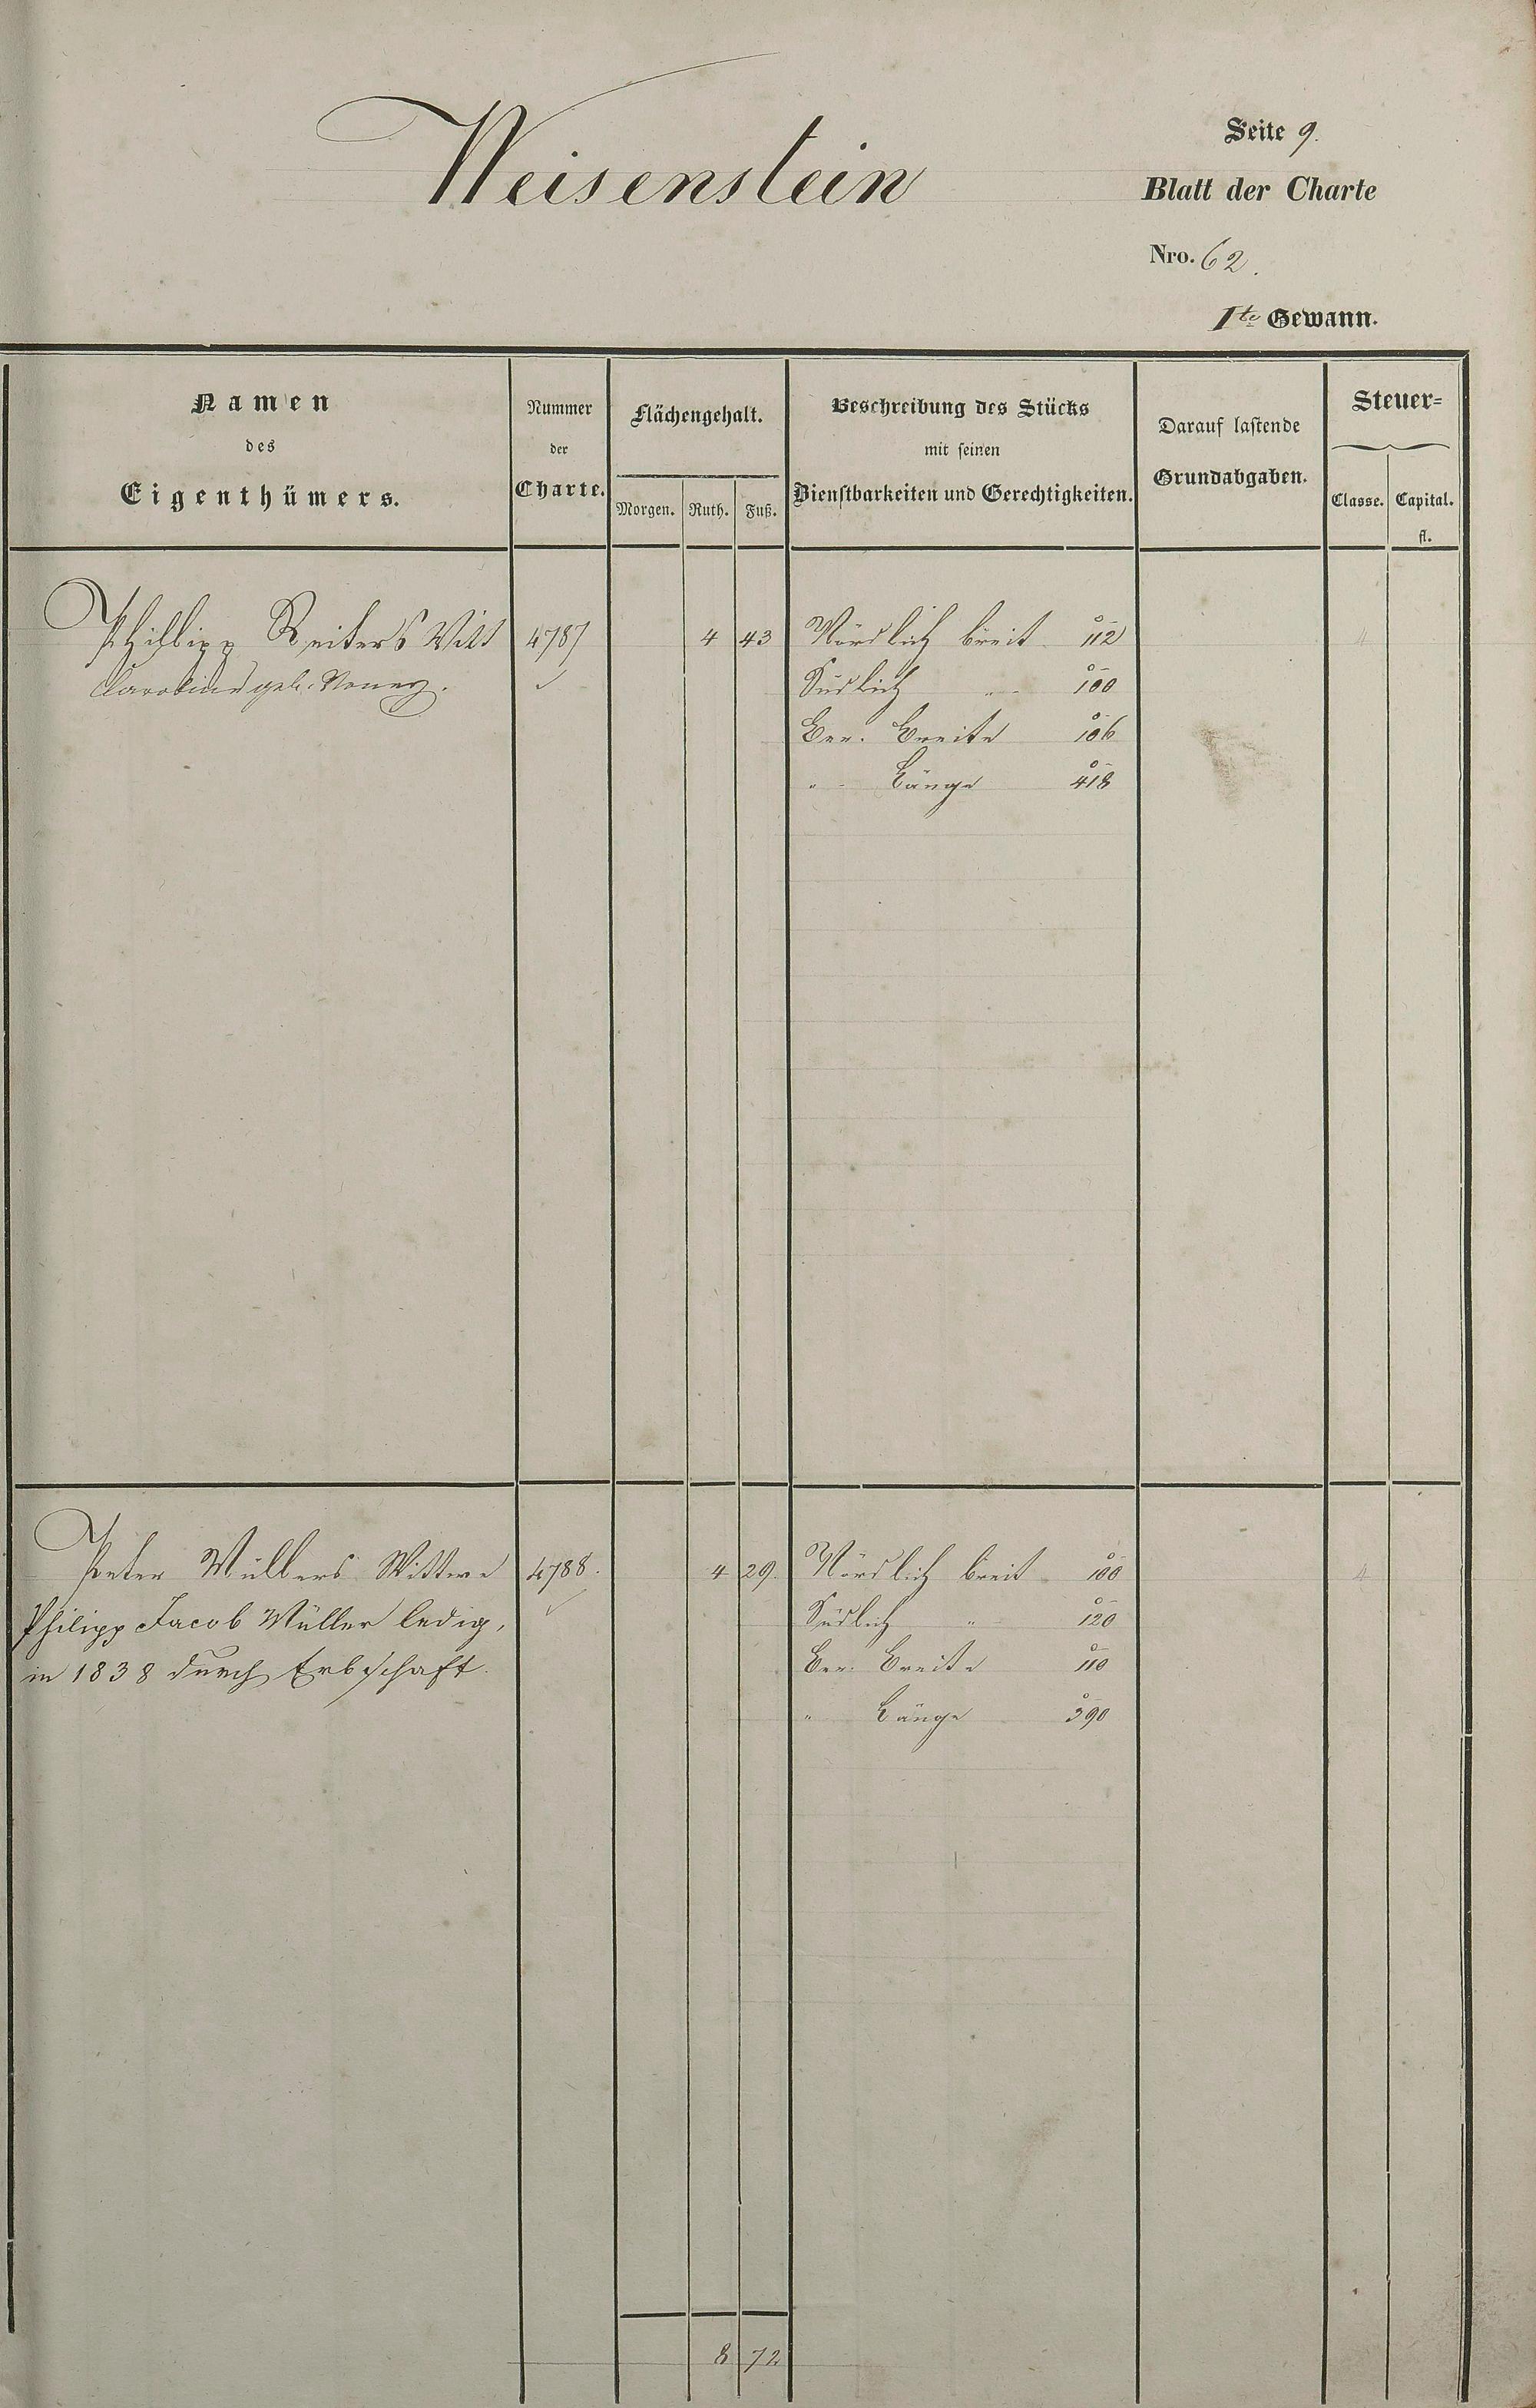 Weisenstein
Seite 9.
Blatt der Charte
Nro. 62.
1te Gewann.
Namen
des
Eigenthümers.
Nummer
der
Charte.
Flächengehalt.
Morgen. Ruth. Fuß.
Beschreibung des Stücks
mit seinen
Dienstbarkeiten und Gerechtigkeiten.
Darauf lastende
Grundabgaben.
Steuer=
Classe. Capital.
fl.
Phillipp Reiters Witt 4787 4 43 Nördlich breit 112 4
Caroline geb. Südlich " 100
Ber. Breite 106
" Länge 418
Peter Müllers Wittwe 4788. 4 29. Nördlich breit 100 4
Philipp Jacob Müller ledig, Südlich " 120
in 1838 durch Erbschaft. Ber. Breite 110
" Länge 390
8 72